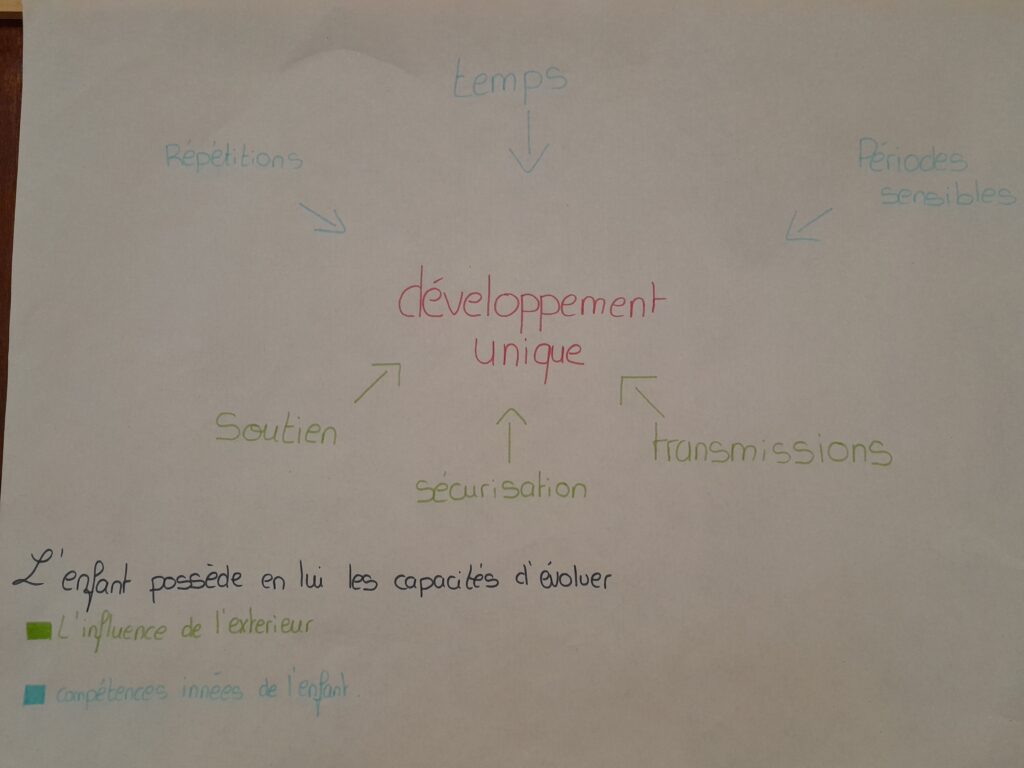 temps
Répétitions
Périodes
sensibles
développement
unique
Soutien
transmissions
sécurisation
L'enfant possède en lui les capacités d'évoluer
L'influence de l'exterieur
compétences innées de l'enfant.